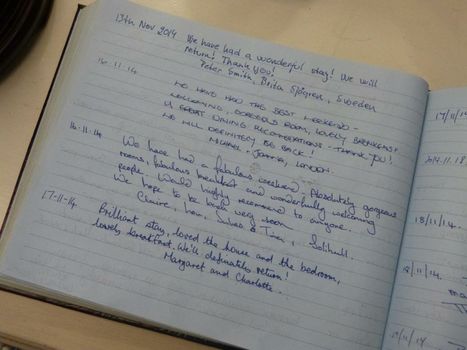 13th Nov 2014 We have had a wonderful stay! We will
return! Thank you!
Peter Smith, Britta Sjögren, Sweden
16.11.14
WE HAVE HAD THE BEST WEEKEND -
WELCOMING, GORGEOUS ROOM, LOVELY BREAKFAST
DINING RECOMMENDATIONS - THANK YOU!
WE WILL DEFINITELY BE BACK!
MICHAEL + JOANNA, LONDON.
16.11.14 We have had a fabulous weekend. Absolutely gorgeous
rooms, fabulous breakfast and wonderfully welcoming
people. Would highly recommend to anyone.
We hope to be back very soon
Claire, Ian, & Solihull.
17-11-14 Brilliant stay, loved the house and the bedroom,
lovely breakfast. We'll definately return!
Margaret and Charlotte.
17/11/
2014.11.18
18/11/
18/11/14.
19/11/14